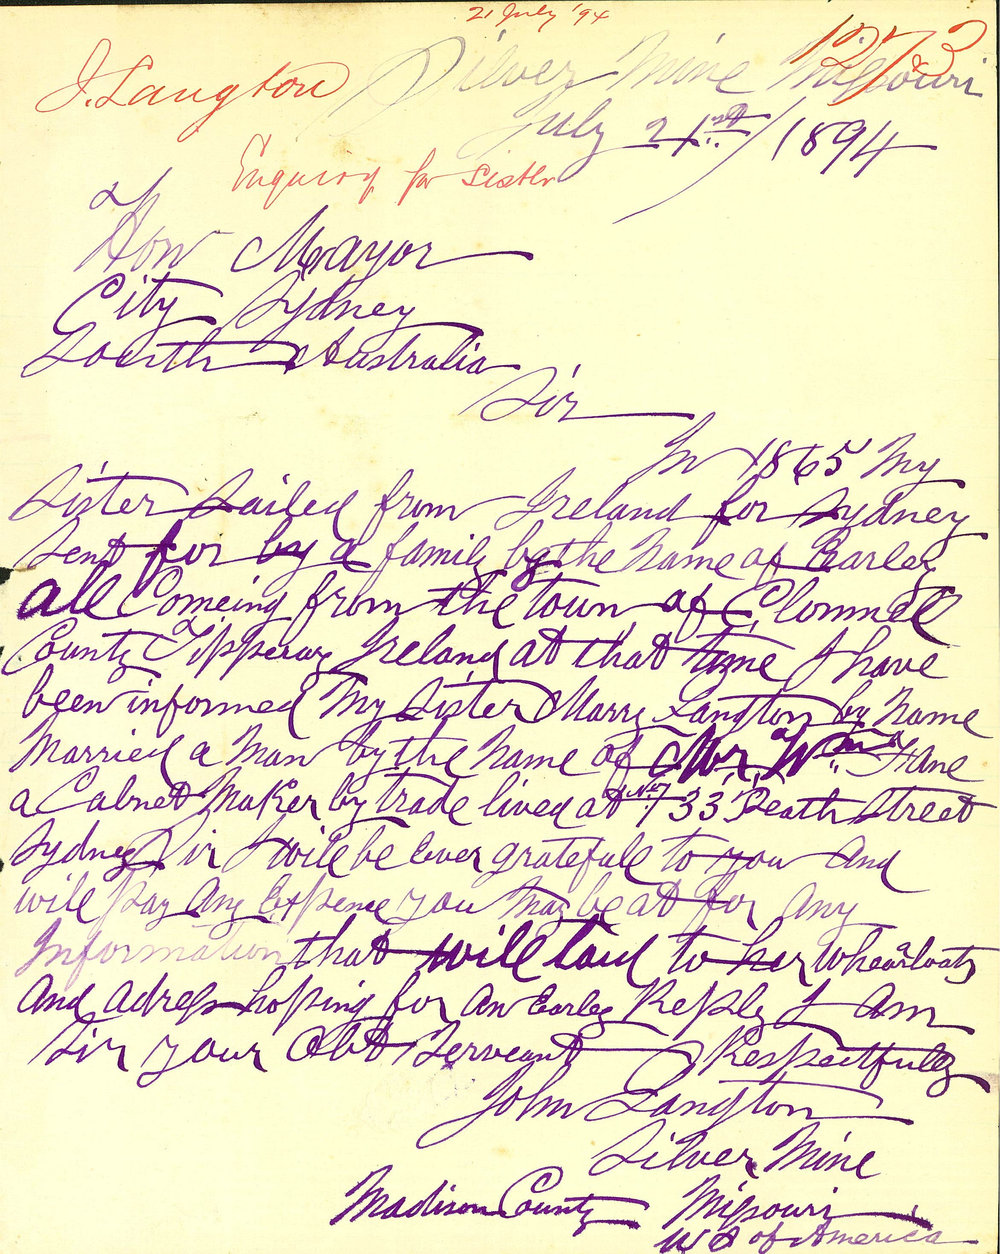 21 July '94
1273
J. Langton
Silver Mine Missouri
July 21st / 1894
Enquiry for sister
To
Hon Mayor
City Sydney
South Australia
Sir
In 1865 My
Sister Sailed from Ireland for Sydney
Sent for by a family by the Name of Earley
all Comeing from the town of Clonmell
County Tipperary Ireland at that time I have
been informed My Sister Marry Langton by Name
Married a Man by the Name of Mr. Wm Hane
a Cabnet Maker by trade lived at No 733 Death Street
Sydney Sir I will be Ever gratefull to you And
will pay Any Expence you May be at for Any
Information that will to her Whearabouts
And adress hoping for An Earley Reply I Am
Sir your Obt Serveant Respectfully
John Langton
Silver Mine
Madison County Missouri
U S of America